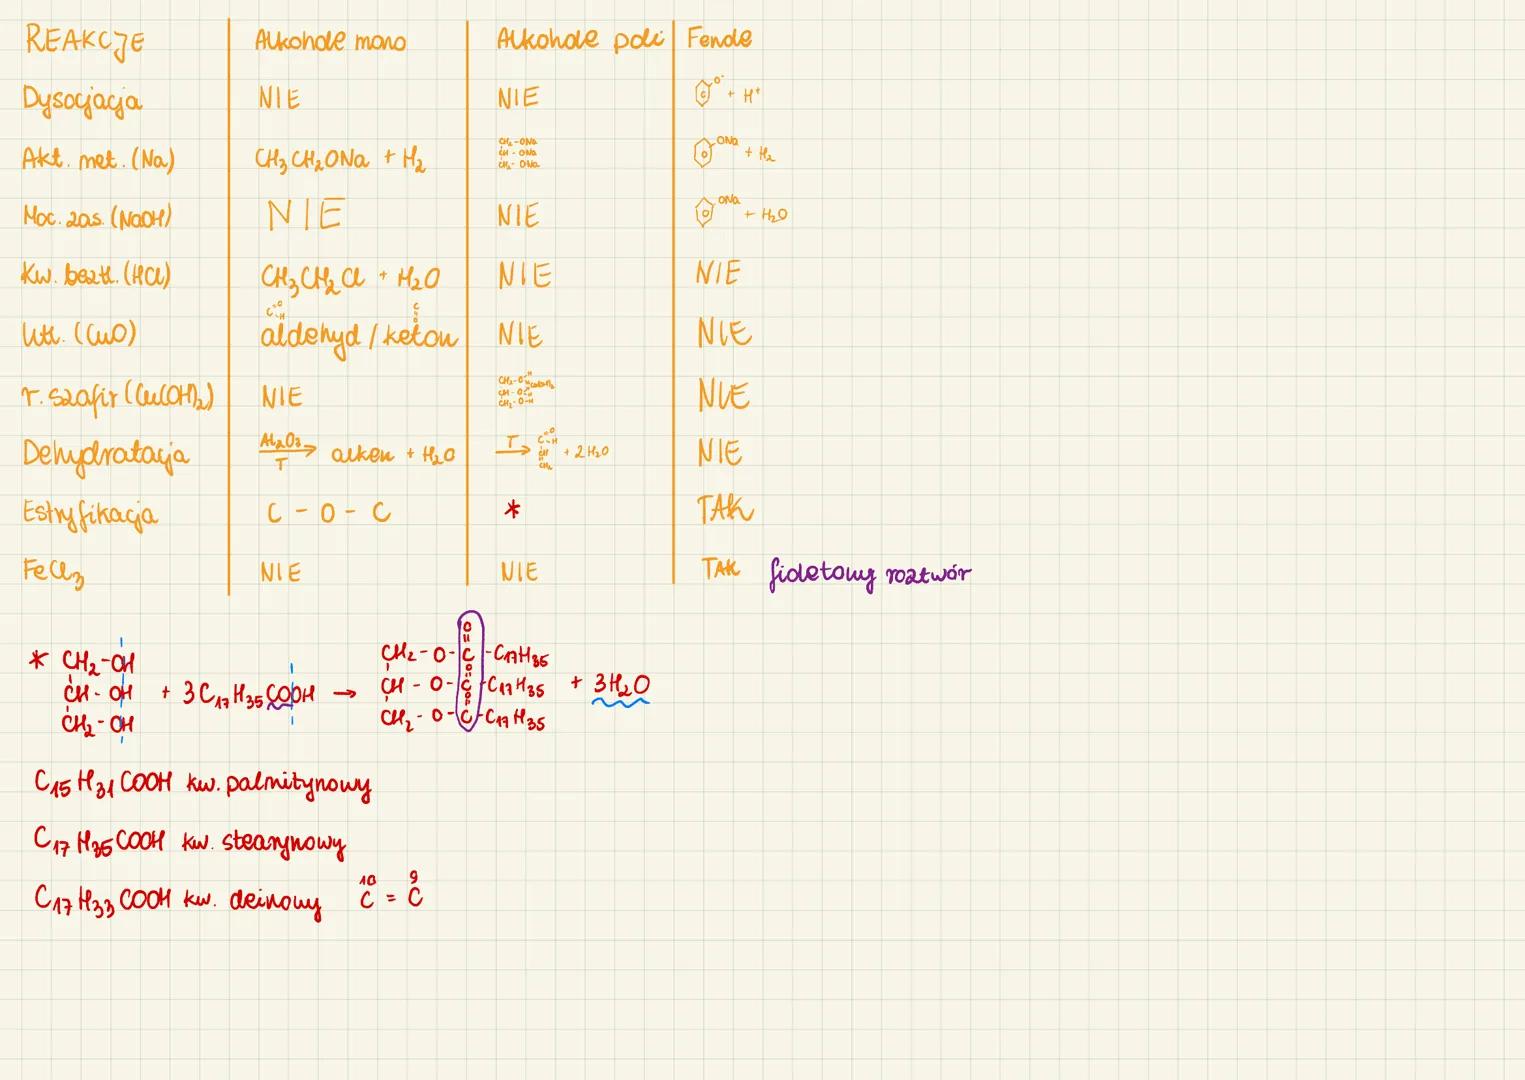 REAKCJE Alkohole mono Alkohole poli Fenole
Dysocjacja NIE NIE O⁻ + H⁺
Akt. met. (Na) CH₃CH₂ONa + H₂ CH₂-ONa CH-ONa CH₂-ONa ONa + H₂
Moc. zas. (NaOH) NIE NIE ONa + H₂O
Kw. beztl. (HCl) CH₃CH₂Cl + H₂O NIE NIE
Utl. (CuO) aldehyd / keton NIE NIE
r. szafir (Cu(OH)₂) NIE NIE
Dehydratacja Al₂O₃ T → alken + H₂O T → C=O-H CH CH₂ + 2H₂O NIE
Estryfikacja C - O - C * TAK
FeCl₃ NIE NIE TAK fioletowy roztwór
* CH₂-OH CH₂-O-C-C₁₇H₃₅
CH-OH + 3C₁₇H₃₅COOH → CH-O-C-C₁₇H₃₅ + 3H₂O
CH₂-OH CH₂-O-C-C₁₇H₃₅
C₁₅H₃₁COOH kw. palmitynowy
C₁₇H₃₅COOH kw. stearynowy
C₁₇H₃₃COOH kw. oleinowy 10 C = 9 C